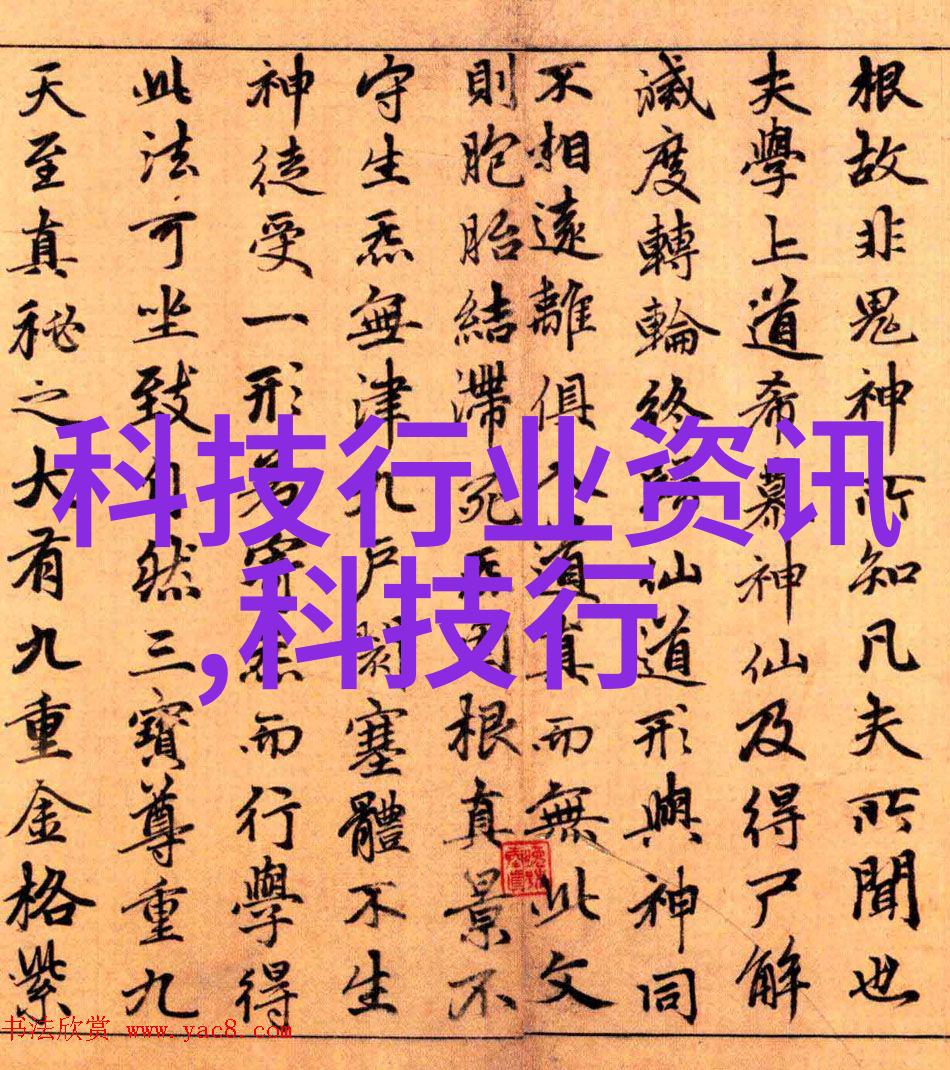 根故非鬼神所知凡夫所聞也
夫學上道希慕神仙及得尸解
滅度轉輪終歸仙道形與神同
不相遠離俱入道真而無此文
則胞胎結滯死炁固根真景不
守生炁無津九戶閉塞體不生
神徒受一形若寄炁而行學得
此法可坐致自然三寶尊重九
天至真祕之大有九重金格紫
科技行业资讯
,科技行
书法欣赏 www.yac8.com